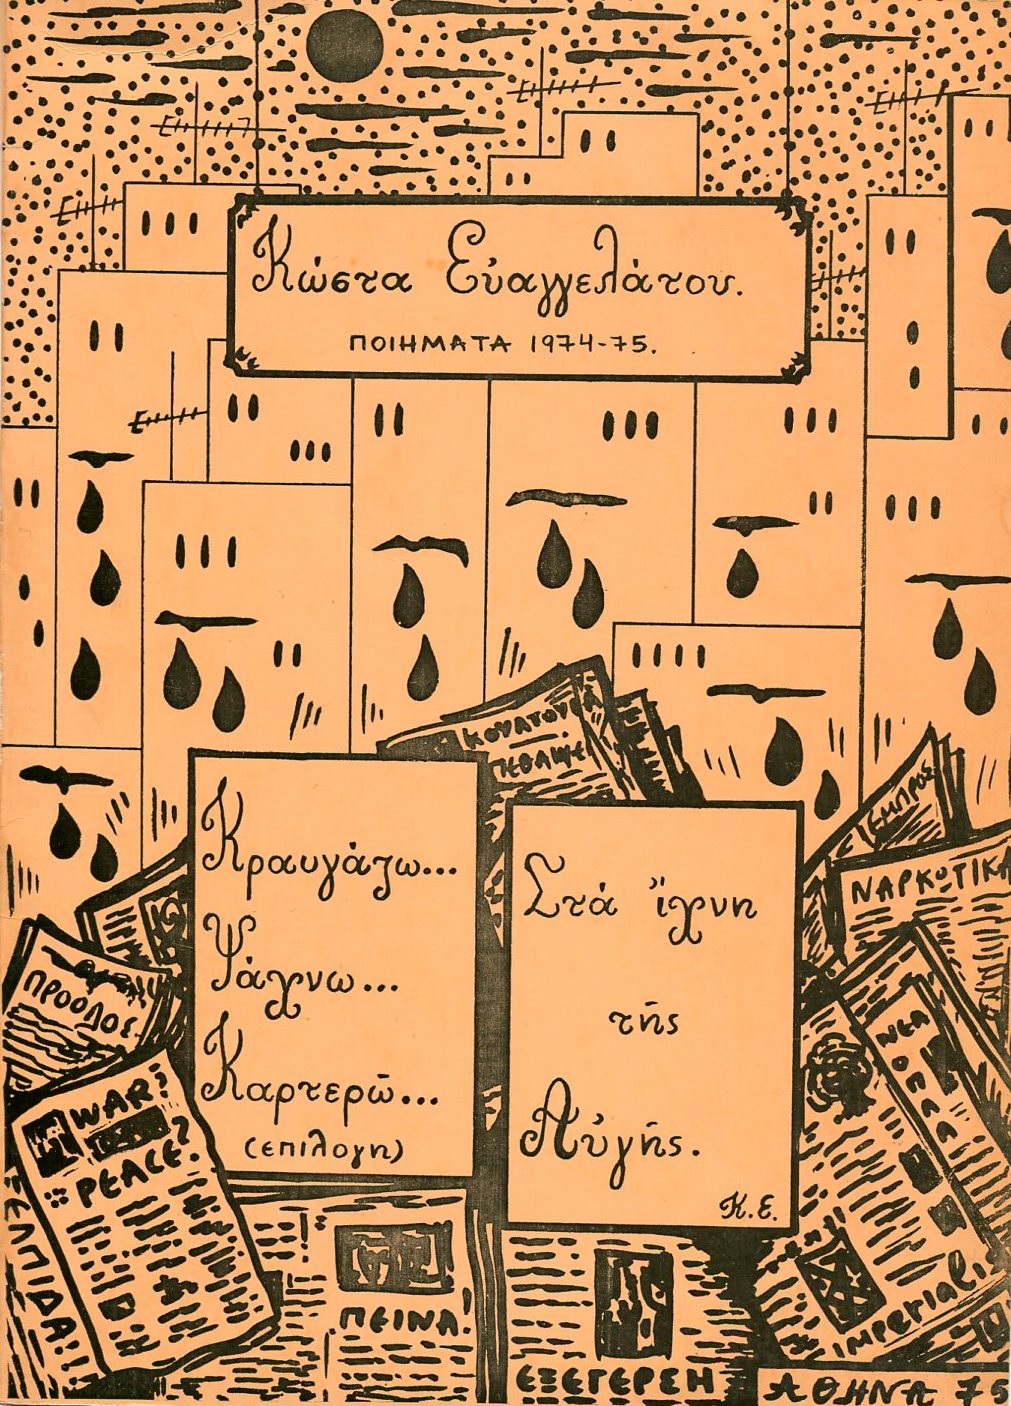 Κώστα Εὐαγγελάτου.
ΠΟΙΗΜΑΤΑ 1974-75.
Κραυγάζω...
Ψάχνω...
Καρτερῶ...
(επιλογη)
Στά ἴχνη
τῆς
Αὐγῆς.
Κ.Ε.
ΚΟΥΛΤΟΥΡΑ
ΕΜΠΡΟΣ
ΝΑΡΚΩΤΙΚΑ
ΠΡΟΟΔΟΣ.
WAR?
PEACE?
ΕΛΠΙΔΑ!!
ΠΕΙΝΑ!
ΕΞΕΓΕΡΣΗ
ΝΕΑ
ΟΠΛΑ
imperialis
ΑΘΗΝΑ 75